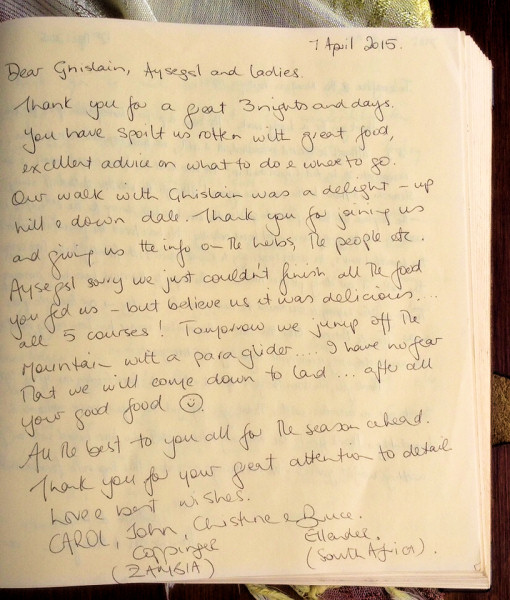 7 April 2015.
Dear Ghislain, Aysegsl and ladies.
Thank you for a great 3 nights and days.
You have spoilt us rotten with great food,
excellent advice on what to do & where to go.
Our walk with Ghislain was a delight – up
hill & down dale. Thank you for joining us
and giving us the info on the herbs, the people etc.
Aysegsl sorry we just couldn't finish all the food
you fed us – but believe us it was delicious....
all 5 courses! Tomorrow we jump off the
mountain with a paraglider.... I have no fear
that we will come down to land ... after all
your good food ☺.
All the best to you all for the season ahead.
Thank you for your great attention to detail
Love & best wishes.
CAROL, John, Christine & Bruce.
Coppinger
(ZAMBIA)
(South Africa).